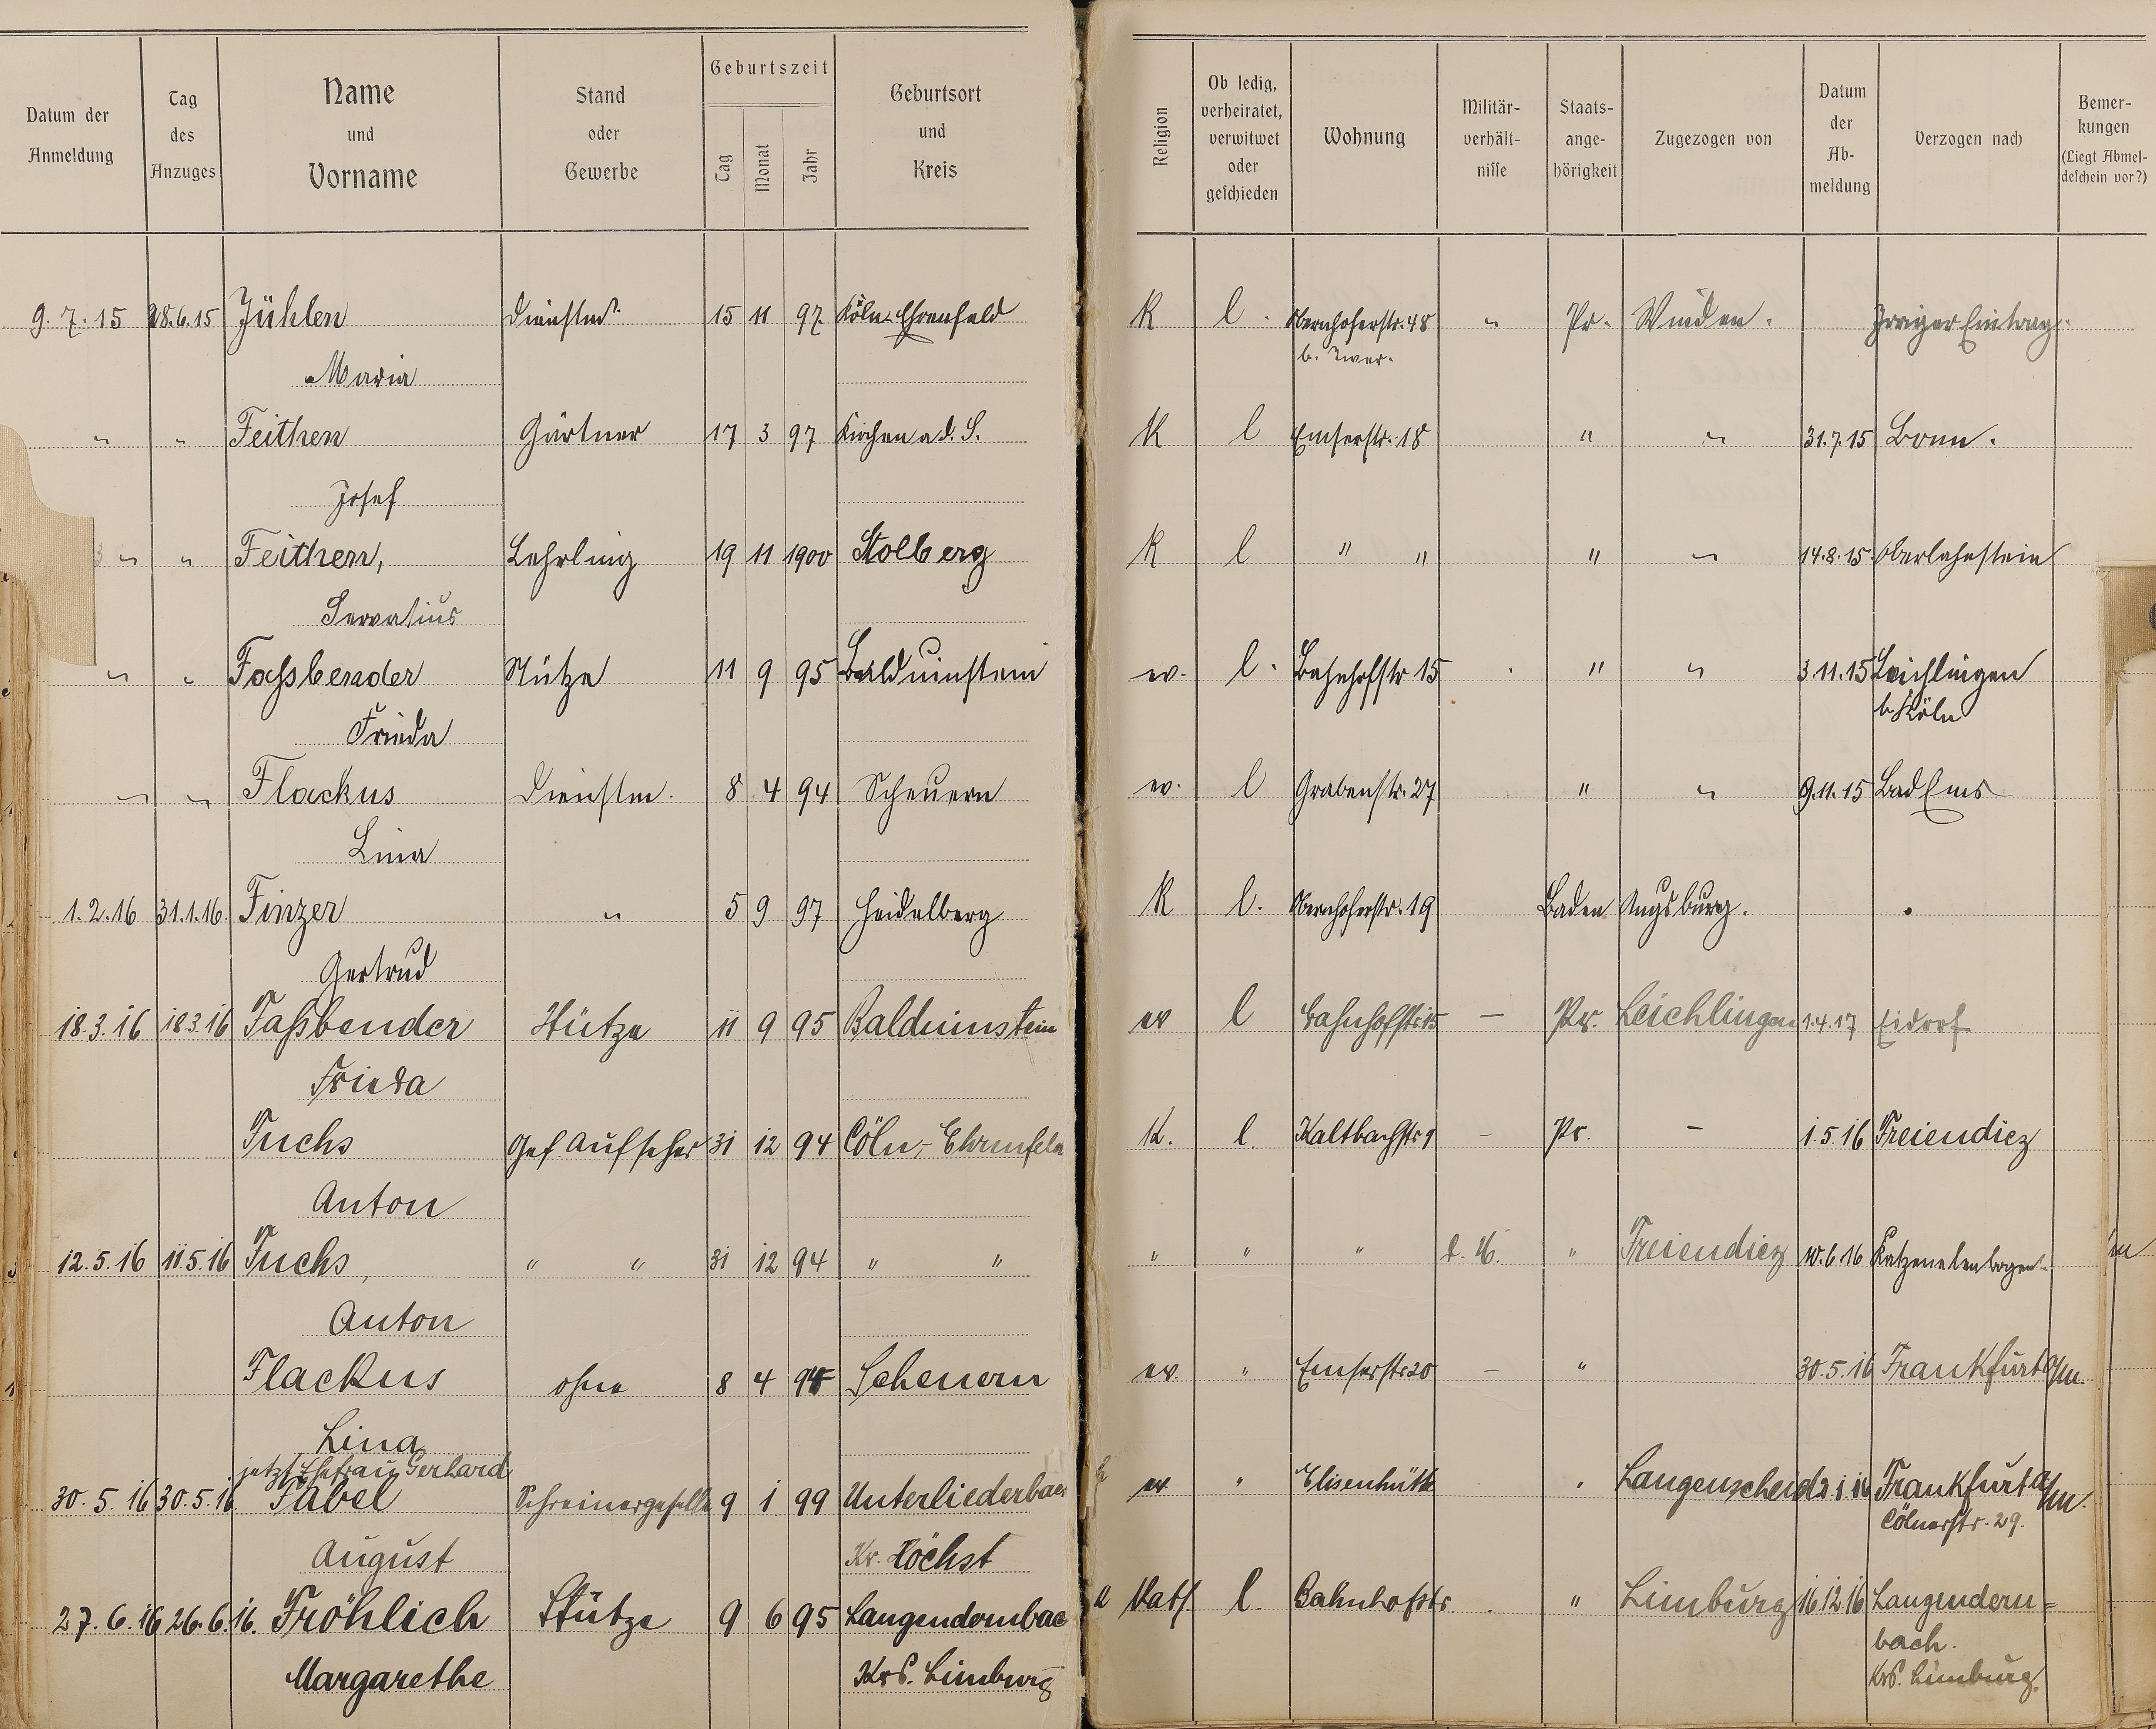 Datum der Anmeldung | Tag des Anzuges | Name und Vorname | Stand oder Gewerbe | Geburtszeit: Tag | Monat | Jahr | Geburtsort und Kreis | Religion | Ob ledig, verheiratet, verwitwet oder geschieden | Wohnung | Militär-verhält-nisse | Staats-ange-hörigkeit | Zugezogen von | Datum der Ab-meldung | Verzogen nach | Bemer-kungen (Liegt Abmel-deschein vor?)
9.7.15 28.6.15 Jühlen Dienstm. 15 11 97 Köln-Ehrenfeld K l. Obernhoferstr. 48 " Pr. Winden. Irriger Eintrag.
Maria b.
" " Feithen Gärtner 17 3 97 Kirchen a.d.S. K l Emserstr. 18 " " 31.7.15 Bonn.
Josef
" " Feithen, Lehrling 19 11 1900 Stolberg K l " " " " 14.8.15. Oberlahnstein
Servatius
" " Fassbender Stütze 11 9 95 Balduinstein ev. l. Bahnhofstr 15 " " 3.11.15 Leichlingen
Frieda b. Köln
" " Flackus Dienstm. 8 4 94 Scheuern ev. l Grabenstr. 27 " " 9.11.15 Bad Ems
Lina
1.2.16 31.1.16. Finzer " 5 9 97 Heidelberg K l. Obernhoferstr. 19 Baden Augsburg.
Gertrud
18.3.16 18.3.16 Faßbender Stütze 11 9 95 Balduinstein ev l Bahnhofstr 15 — Pr. Leichlingen 1.4.17 Eidorf
Frieda
Fuchs Gef Aufseher 31 12 94 Cöln-Ehrenfeld K. l. Kaltbachstr 9 — Pr. — 1.5.16 Freiendiez
Anton
12.5.16 11.5.16 Fuchs, " " 31 12 94 " " " " " d. U. " Freiendiez 10.6.16 Katzenelenbogen
Anton
Flackus ohne 8 4 94 Scheuern ev. " Emserstr 20 — " 30.5.16 Frankfurt a/M.
Lina
jetzt Ehefrau Gerhard
30.5.16 30.5.16. Fabel Schreinergeselle 9 1 99 Unterliederbach ev. " Elisenhütte " Langenscheid Frankfurt a/M.
August Kr. Höchst Cölnerstr. 29.
27.6.16 26.6.16. Fröhlich Stütze 9 6 95 Langendernbach Kath l. Bahnhofstr. " Limburg 16.12.16. Langendern=
bach.
Margarethe Krs. Limburg Krs. Limburg.